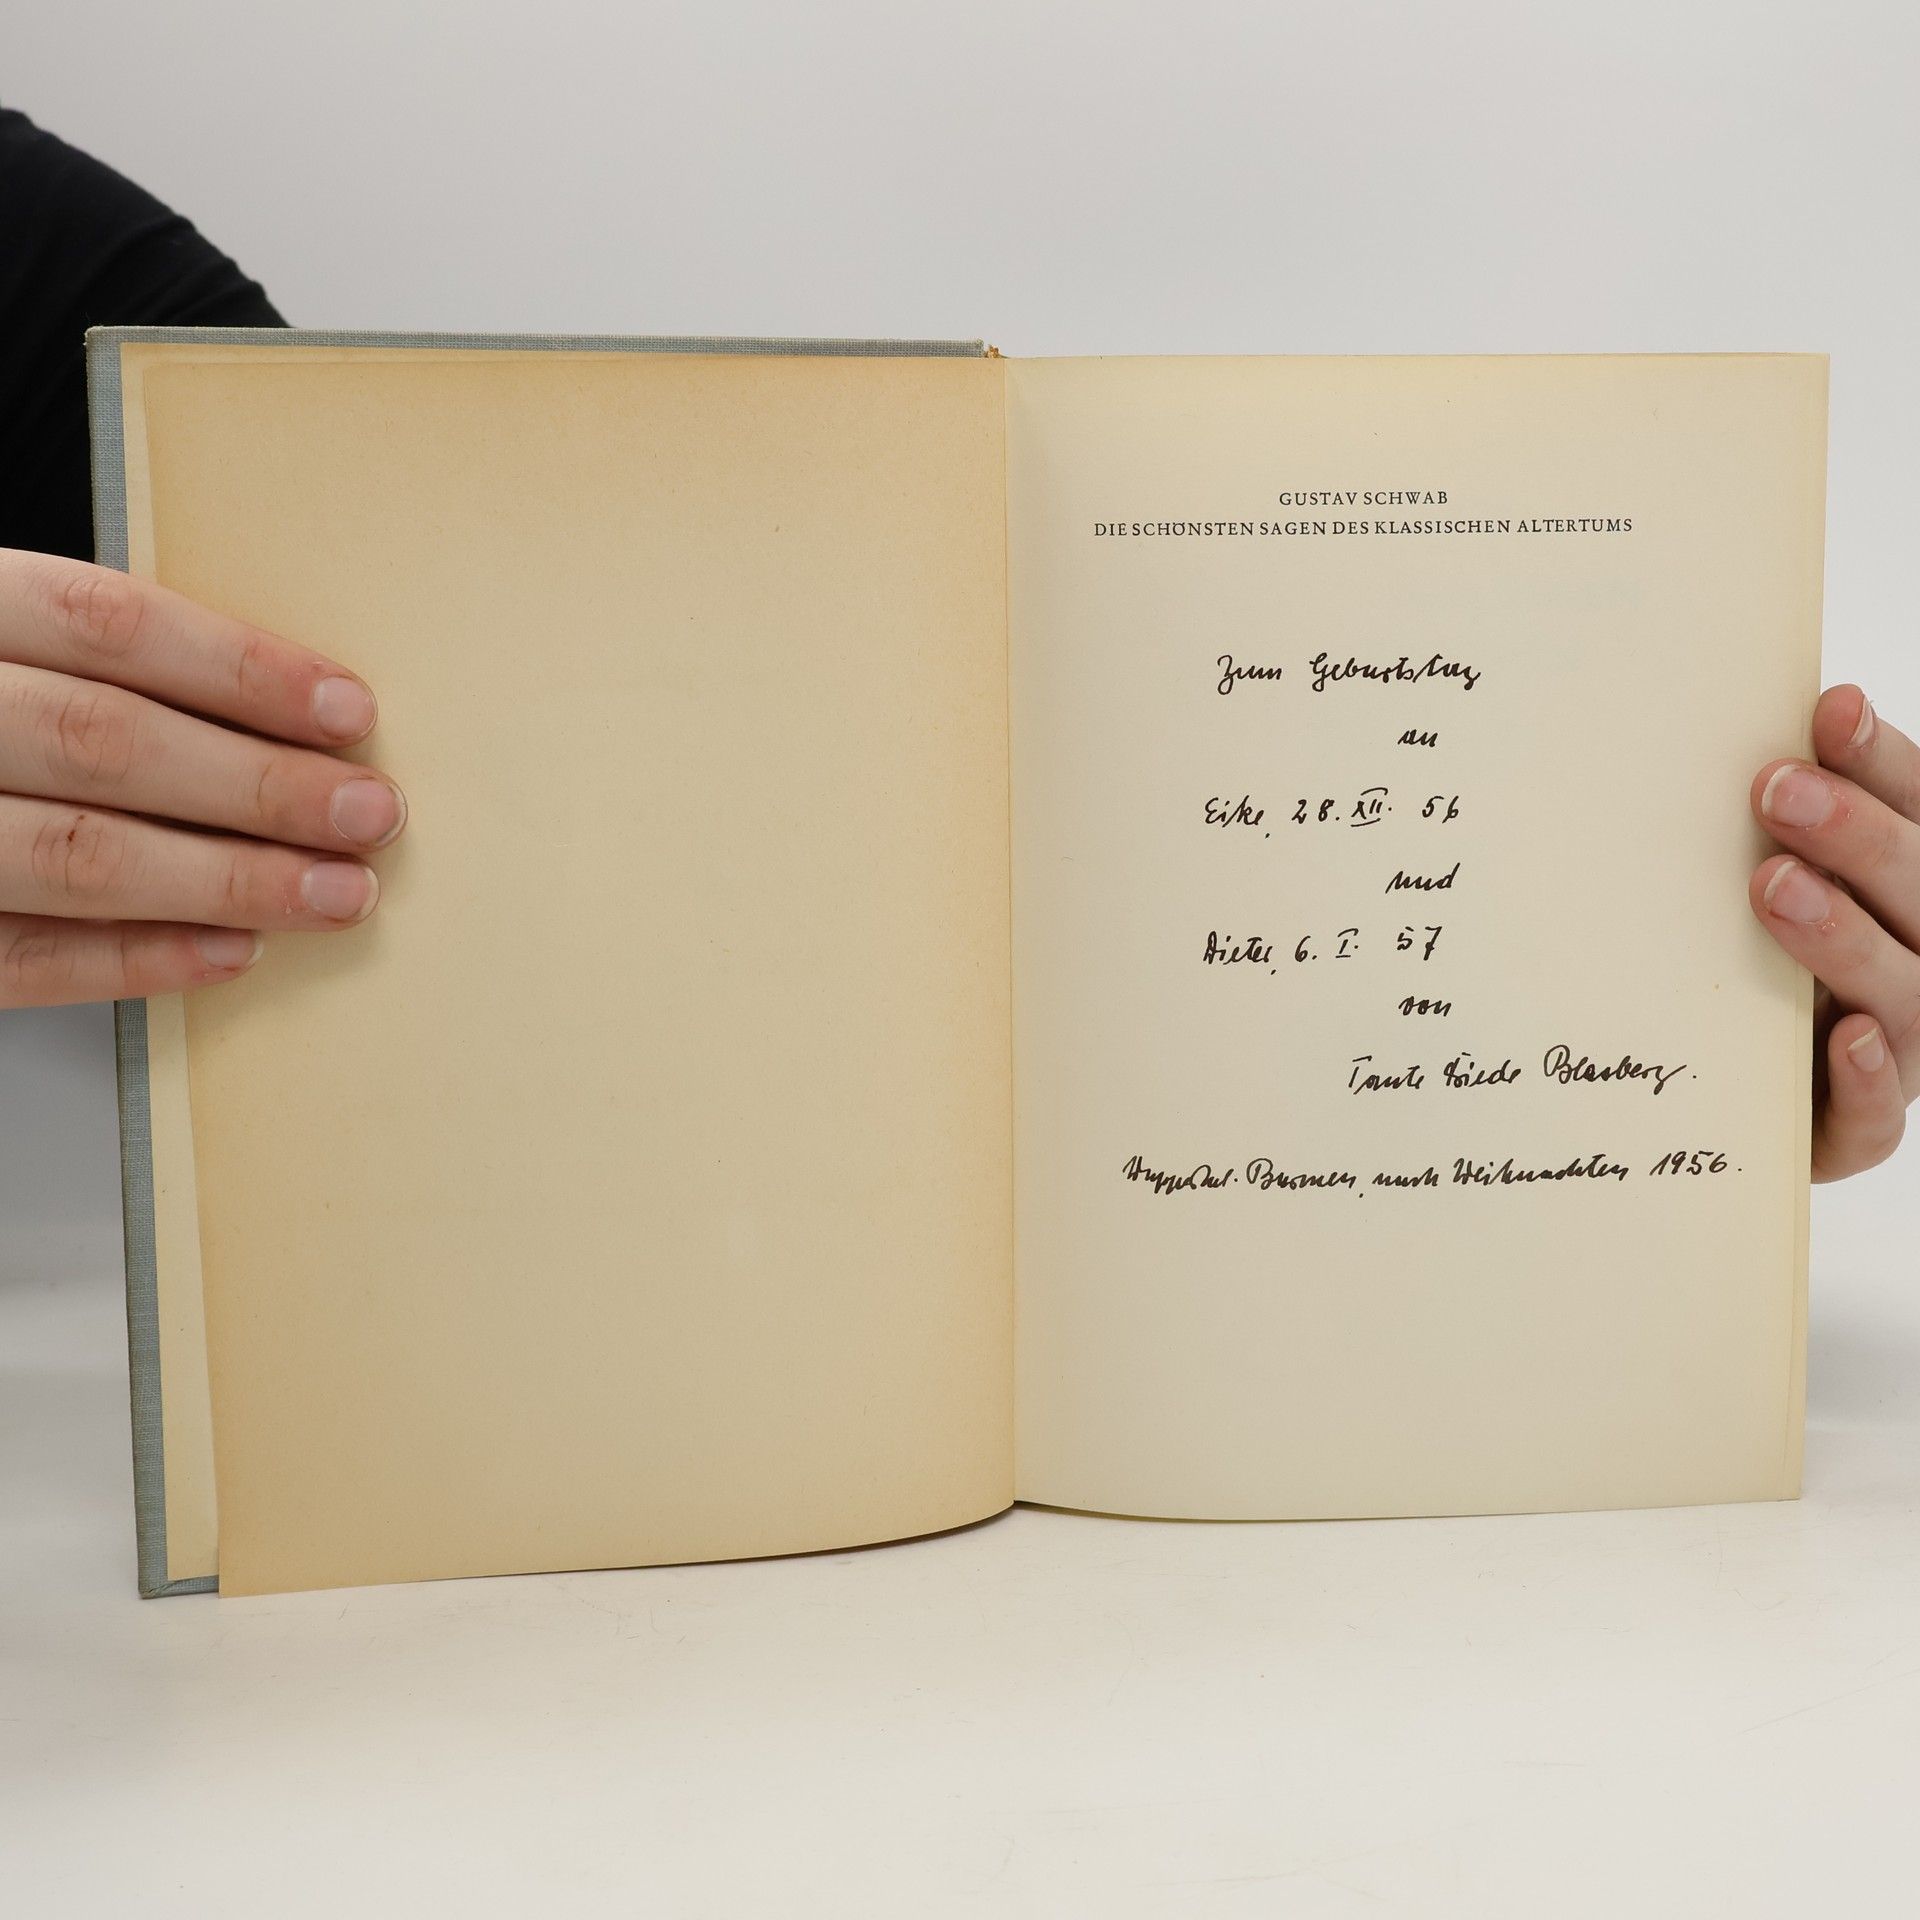 GUSTAV SCHWAB
DIE SCHÖNSTEN SAGEN DES KLASSISCHEN ALTERTUMS
Zum Geburtstag
an
Eike, 28. XII. 56
und
Dieter, 6. I. 57
von
Tante Friede Blasberg.
Wuppertal-Barmen, nach Weihnachten 1956.